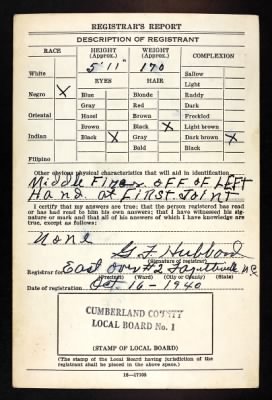 REGISTRAR'S REPORT
DESCRIPTION OF REGISTRANT
RACE HEIGHT (Approx.) WEIGHT (Approx.) COMPLEXION
5' 11" 170
White Sallow
EYES HAIR Light
Negro X Blue Blonde Ruddy
Gray Red Dark
Oriental Hazel Brown Freckled
Brown Black X Light brown
Indian Black X Gray Dark brown X
Bald Black
Filipino
Other obvious physical characteristics that will aid in identification
Middle Finger off of LEFT
Hand at First Joint
I certify that my answers are true; that the person registered has read
or has had read to him his own answers; that I have witnessed his sig-
nature or mark and that all of his answers of which I have knowledge are
true, except as follows:
None
G F Hubbard
(Signature of registrar)
Registrar for East over #2 Fayetteville N.C.
(Precinct) (Ward) (City or County) (State)
Date of registration Oct 16 - 1940
CUMBERLAND COUNTY
LOCAL BOARD No. 1
(STAMP OF LOCAL BOARD)
(The stamp of the Local Board having jurisdiction of the
registrant shall be placed in the above space.)